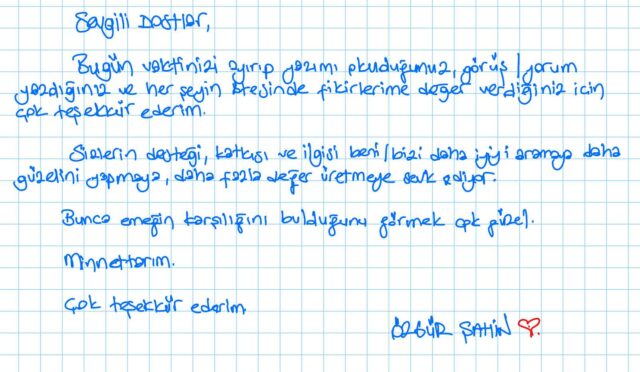 Sevgili Dostlar,
Bugün vaktinizi ayırıp yazımı okuduğunuz, görüş/yorum
yazdığınız ve her şeyin ötesinde fikirlerime değer verdiğiniz için
çok teşekkür ederim.
Sizlerin desteği, katkısı ve ilgisi beni/bizi daha iyiyi aramaya daha
güzelini yapmaya, daha fazla değer üretmeye sevk ediyor.
Bunca emeğin karşılığını bulduğunu görmek çok güzel.
Minnettarım.
Çok teşekkür ederim.
ÖZGÜR ŞAHİN